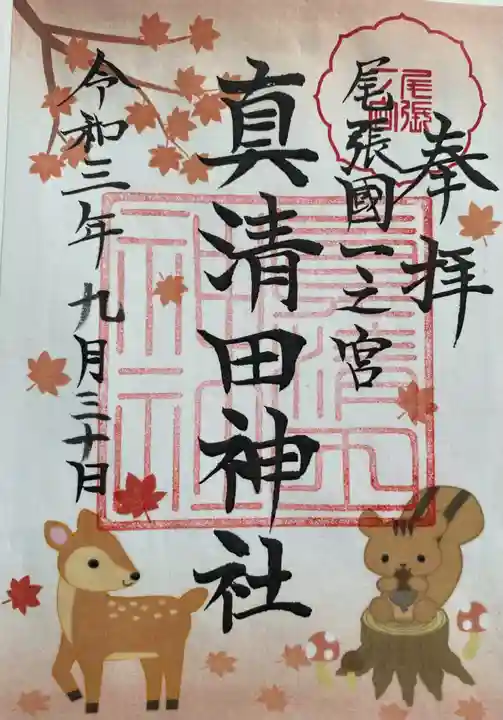 奉拝
尾張國一之宮
真清田神社
令和三年九月三十日